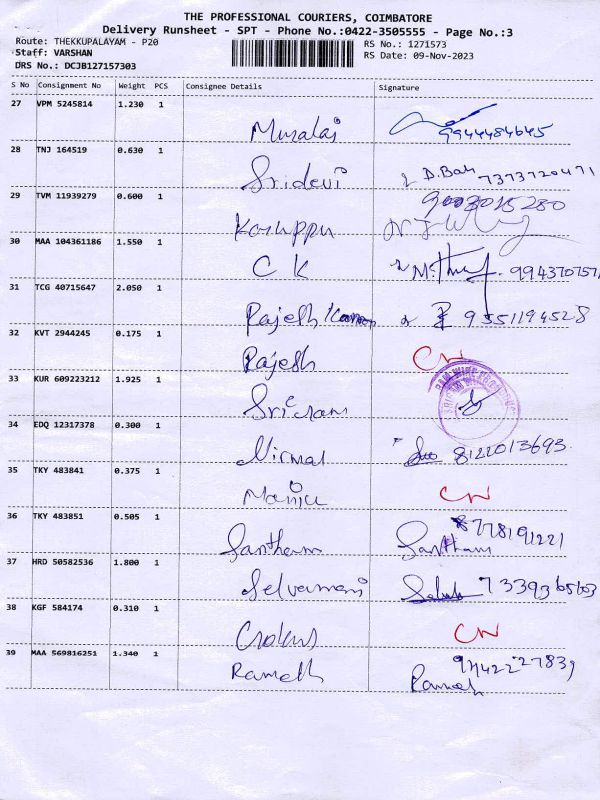 THE PROFESSIONAL COURIERS, COIMBATORE
Delivery Runsheet - SPT - Phone No.:0422-3505555 - Page No.:3
Route: THEKKUPALAYAM - P20
RS No.: 1271573
Staff: VARSHAN
RS Date: 09-Nov-2023
DRS No.: DCJB127157303
S No Consignment No Weight PCS Consignee Details Signature
27 VPM 5245814 1.230 1
Murali 9944484645
28 TNJ 164519 0.630 1
Sridevi D.Bah 7373720471
29 TVM 11939279 0.600 1
9003015280
Karuppu
30 MAA 104361186 1.550 1
C K
31 TCG 40715647 2.050 1
Rajesh Kannan 9551194528
32 KVT 2944245 0.175 1
Rajesh CN
33 KUR 609223212 1.925 1
Sriram
34 EDQ 12317378 0.300 1
Nirmal 8122013693
35 TKY 483841 0.375 1
Manju CN
36 TKY 483851 0.505 1
8778191221
Santham Santham
37 HRD 50582536 1.800 1
Selvamani
38 KGF 584174 0.310 1
CN
39 MAA 569816251 1.340 1
Ramesh Ramesh